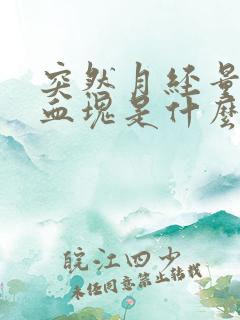 突然月经量
血块是什么
皖江四少
未经同意禁止转载